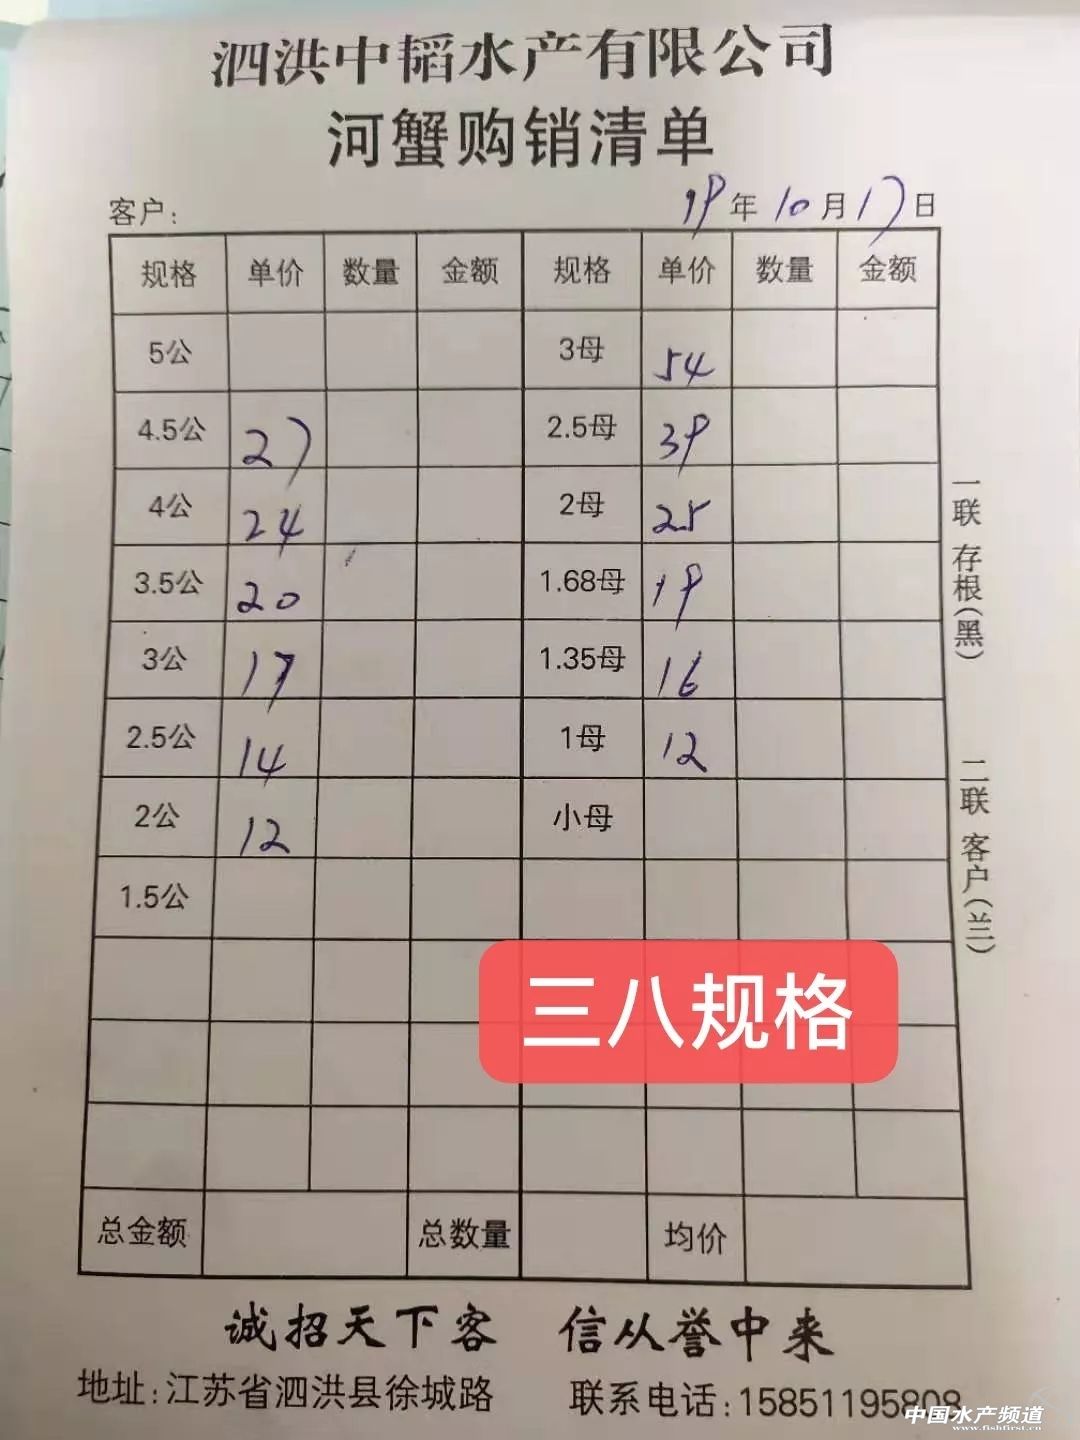 泗洪中韬水产有限公司
河蟹购销清单
客户: 19年10月17日
规格 单价 数量 金额 规格 单价 数量 金额
5公 3母 54
4.5公 27 2.5母 39
4公 24 2母 25
3.5公 20 1.68母 19
3公 17 1.35母 16
2.5公 14 1母 12
2公 12 小母
1.5公
三八规格
总金额 总数量 均价
一联 存根(黑) 二联 客户(兰)
诚招天下客 信从誉中来
地址:江苏省泗洪县徐城路 联系电话:15851195808
中国水产频道
www.fishfirst.cn